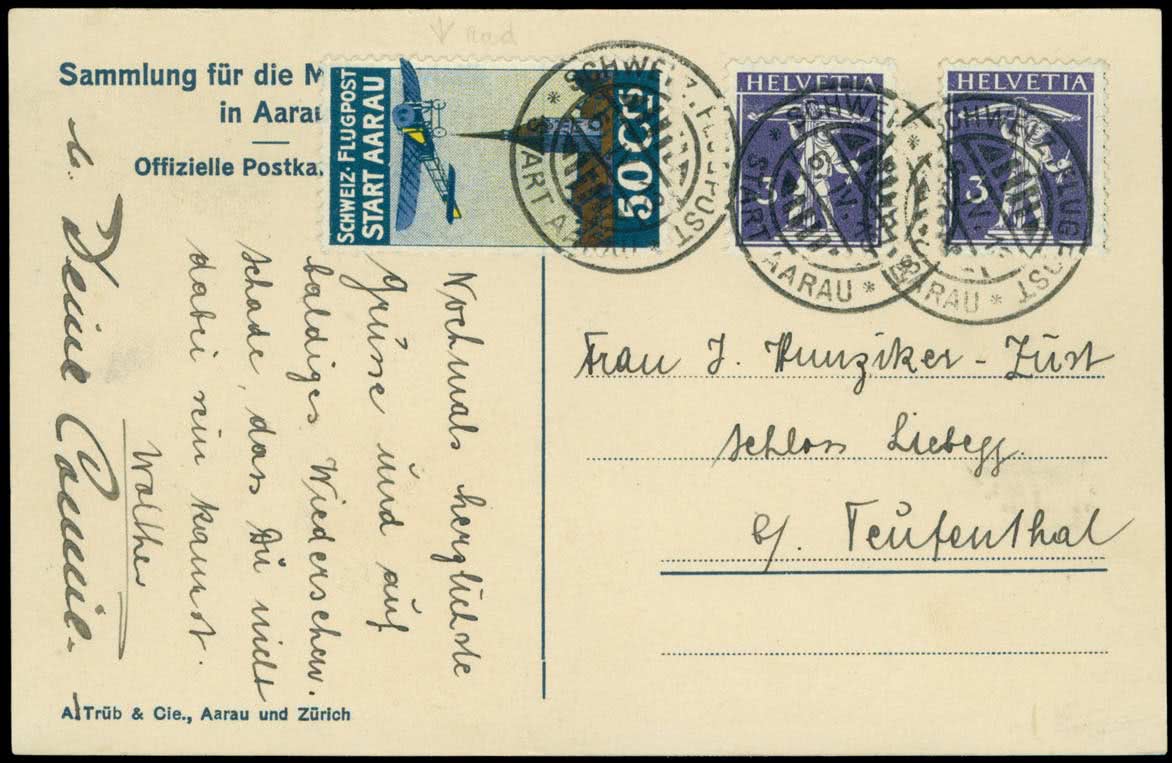 Rad
Sammlung für die N
in Aarau
Offizielle Postka
SCHWEIZ-FLUGPOST
START AARAU
50 CTS
HELVETIA
3
HELVETIA
3
SCHWEIZ. FLUGPOST
* START AARAU *
SCHWEIZ. FLUGPOST
* START AARAU *
SCHWEIZ. FLUGPOST
* START AARAU *
Nochmals herzlichste
Grüsse und auf
baldiges Wiedersehen.
Schade, dass Du nicht
dabei sein kannst.
Walther
u. Deine Connie.
Frau J. Hunziker-Züst
Schloss Liebegg
b/. Teufenthal
A. Trüb & Cie., Aarau und Zürich